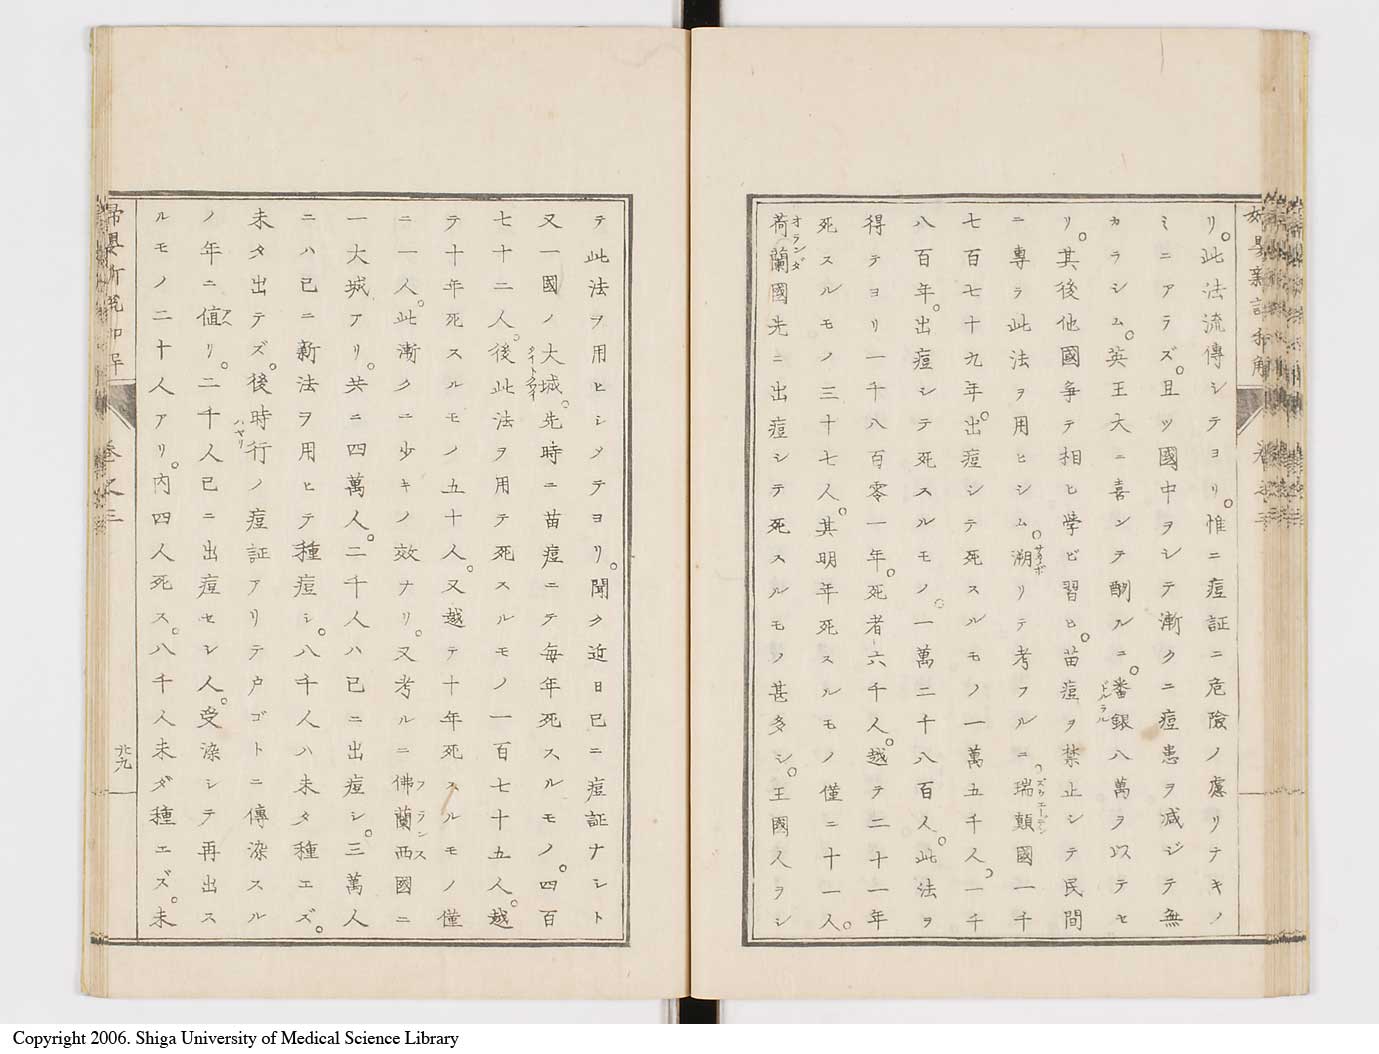 リ。此法流傳シテヨリ。惟ニ痘証ニ危險ノ慮リテキノ
ミニアラズ。且ツ國中ヲシテ漸クニ痘患ヲ減ジテ無
カラシム。英王大ニ喜ンテ酬ルニ。番銀八萬ヲ以テセ
ドルラル
リ。其後他國争テ相ヒ学ビ習ヒ。苗痘ヲ禁止シテ民間
ニ專ラ此法ヲ用ヒシム。溯リテ考フルニ瑞顛國一千
サカノボ
スウエーデン
七百七十九年。出痘シテ死スルモノ一萬五千人。一千
八百年。出痘シテ死スルモノ。一萬二千八百人。此法ヲ
得テヨリ一千八百零一年。死者六千人。越テ二十一年
死スルモノ三十七人。其明年死スルモノ僅ニ十一人。
荷蘭國先ニ出痘シテ死スルモノ甚多シ。王國人ヲシ
オランダ
テ此法ヲ用ヒシメテヨリ。聞ク近日已ニ痘証ナシト
又一國ノ大城。先時ニ苗痘ニテ毎年死スルモノ。四百
七十二人。後此法ヲ用テ死スルモノ一百七十五人。越
テ十年死スルモノ五十人。又越テ十年死スルモノ僅
ニ一人。此漸クニ少キノ效ナリ。又考ルニ佛蘭西國ニ
フランス
一大城アリ。共ニ四萬人。二千人ハ已ニ出痘シ。三萬人
ニハ已ニ新法ヲ用ヒテ種痘シ。八千人ハ未タ種エズ。
未タ出テズ。後時行ノ痘証アリテ戸ゴトニ傳染スル
ハヤリ
ノ年ニ値リ。二千人已ニ出痘セシ人。受染シテ再出ス
ルモノ二十人アリ。内四人死ス。八千人未ダ種エズ。未
卷之三
Copyright 2006. Shiga University of Medical Science Library